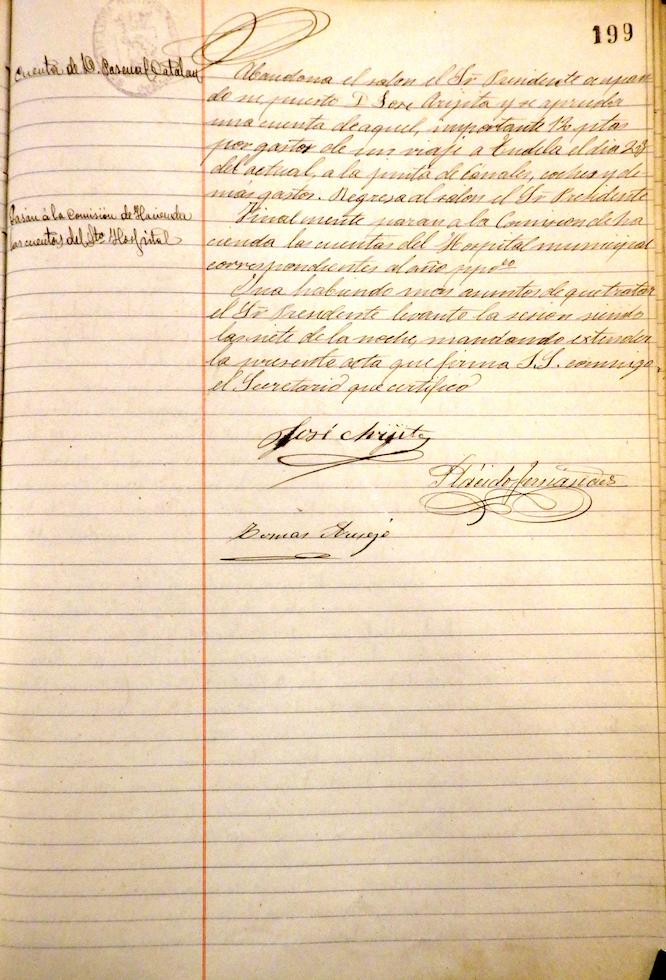 199
Cuenta de D. Pascual Catalan
Abandona el salon el Sr Presidente ocupan
do su puesto D. Jose Arijita y se aprueba
una cuenta de aquel, importante 12 ptas
por gastos de un viaje a Tudela el dia 23
del actual, a la junta de Canales, coches y de
mas gastos. Regresa al salon el Sr Presidente
Pasan á la Comision de Hacienda
las cuentas del Sto Hospital
Finalmente pasan a la Comision de ha
cienda las cuentas del Hospital municipal
correspondientes al año ppdo
habiendo mas asuntos de que tratar
el Sr Presidente levanto la sesion siendo
las siete de la noche, mandando extender
la presente acta que firma S.S. conmigo
el Secretario que certifico
José Arijita
Plácido Fernandes
Tomas